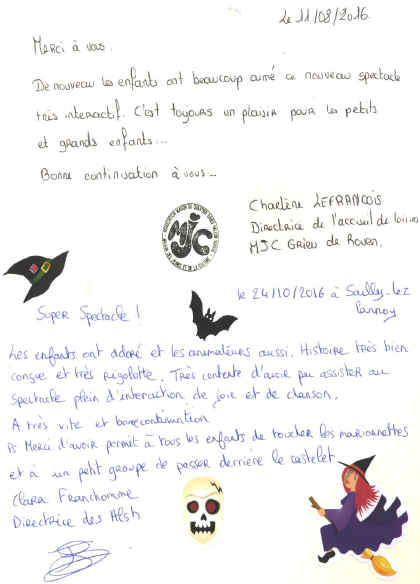 Le 11/08/2016.
Merci à vous.
De nouveau les enfants ont beaucoup aimé ce nouveau spectacle
très interactif. C'est toujours un plaisir pour les petits
et grands enfants...
Bonne continuation à vous...
MJC
Charlène LEFRANCOIS
Directrice de l'accueil de loisirs
MJC Grieu de Rouen.
le 24/10/2016 à Sailly-lez
Lannoy
Super Spectacle !
Les enfants ont adoré et les animateurs aussi. Histoire très bien
conçue et très rigolotte. Très contente d'avoir pu assister au
spectacle plein d'interaction de joie et de chanson.
A très vite et bonne continuation
PS Merci d'avoir permit à tous les enfants de toucher les marionnettes
et à un petit groupe de passer derrière le castelet.
Clara Franchomme
Directrice des Alsh